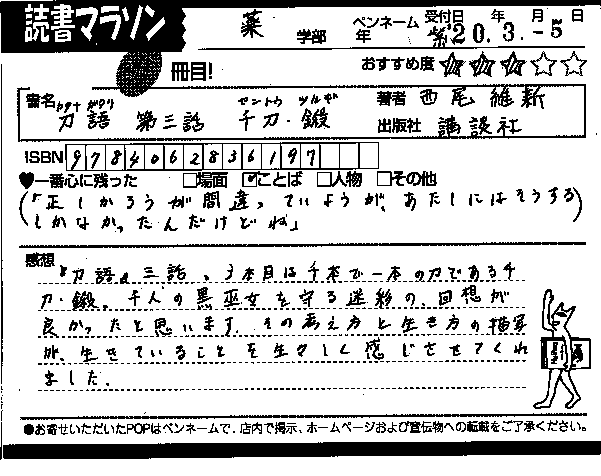 読書マラソン
薬 学部 年 ペンネーム 受付日 20.3.-5 年 月 日
冊目! おすすめ度 ★★★☆☆
書名 カタナ ガタリ セントウ ツルギ
刀語 第三話 千刀・鎩
著者 西尾維新
出版社 講談社
ISBN 9784062836197
♥一番心に残った □場面 ☑ことば □人物 □その他
(「正しかろうが間違っていようが、あたしにはそうする
しかなかったんだけどね」)
感想
『刀語』三話、3本目は千本で一本の刀である千
刀・鎩。千人の黒巫女を守る迷彩の、回想が
良かったと思います。その考え方と生き方の描写
が、生きていることを生々しく感じさせてくれ
ました。
●お寄せいただいたPOPはペンネームで、店内で掲示、ホームページおよび宣伝物への転載をご了承ください。